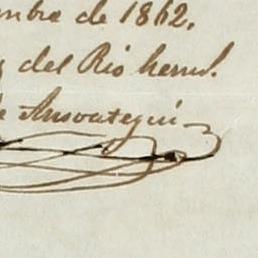 mbre de 1862.
del Rio herm.
de Ansoategui